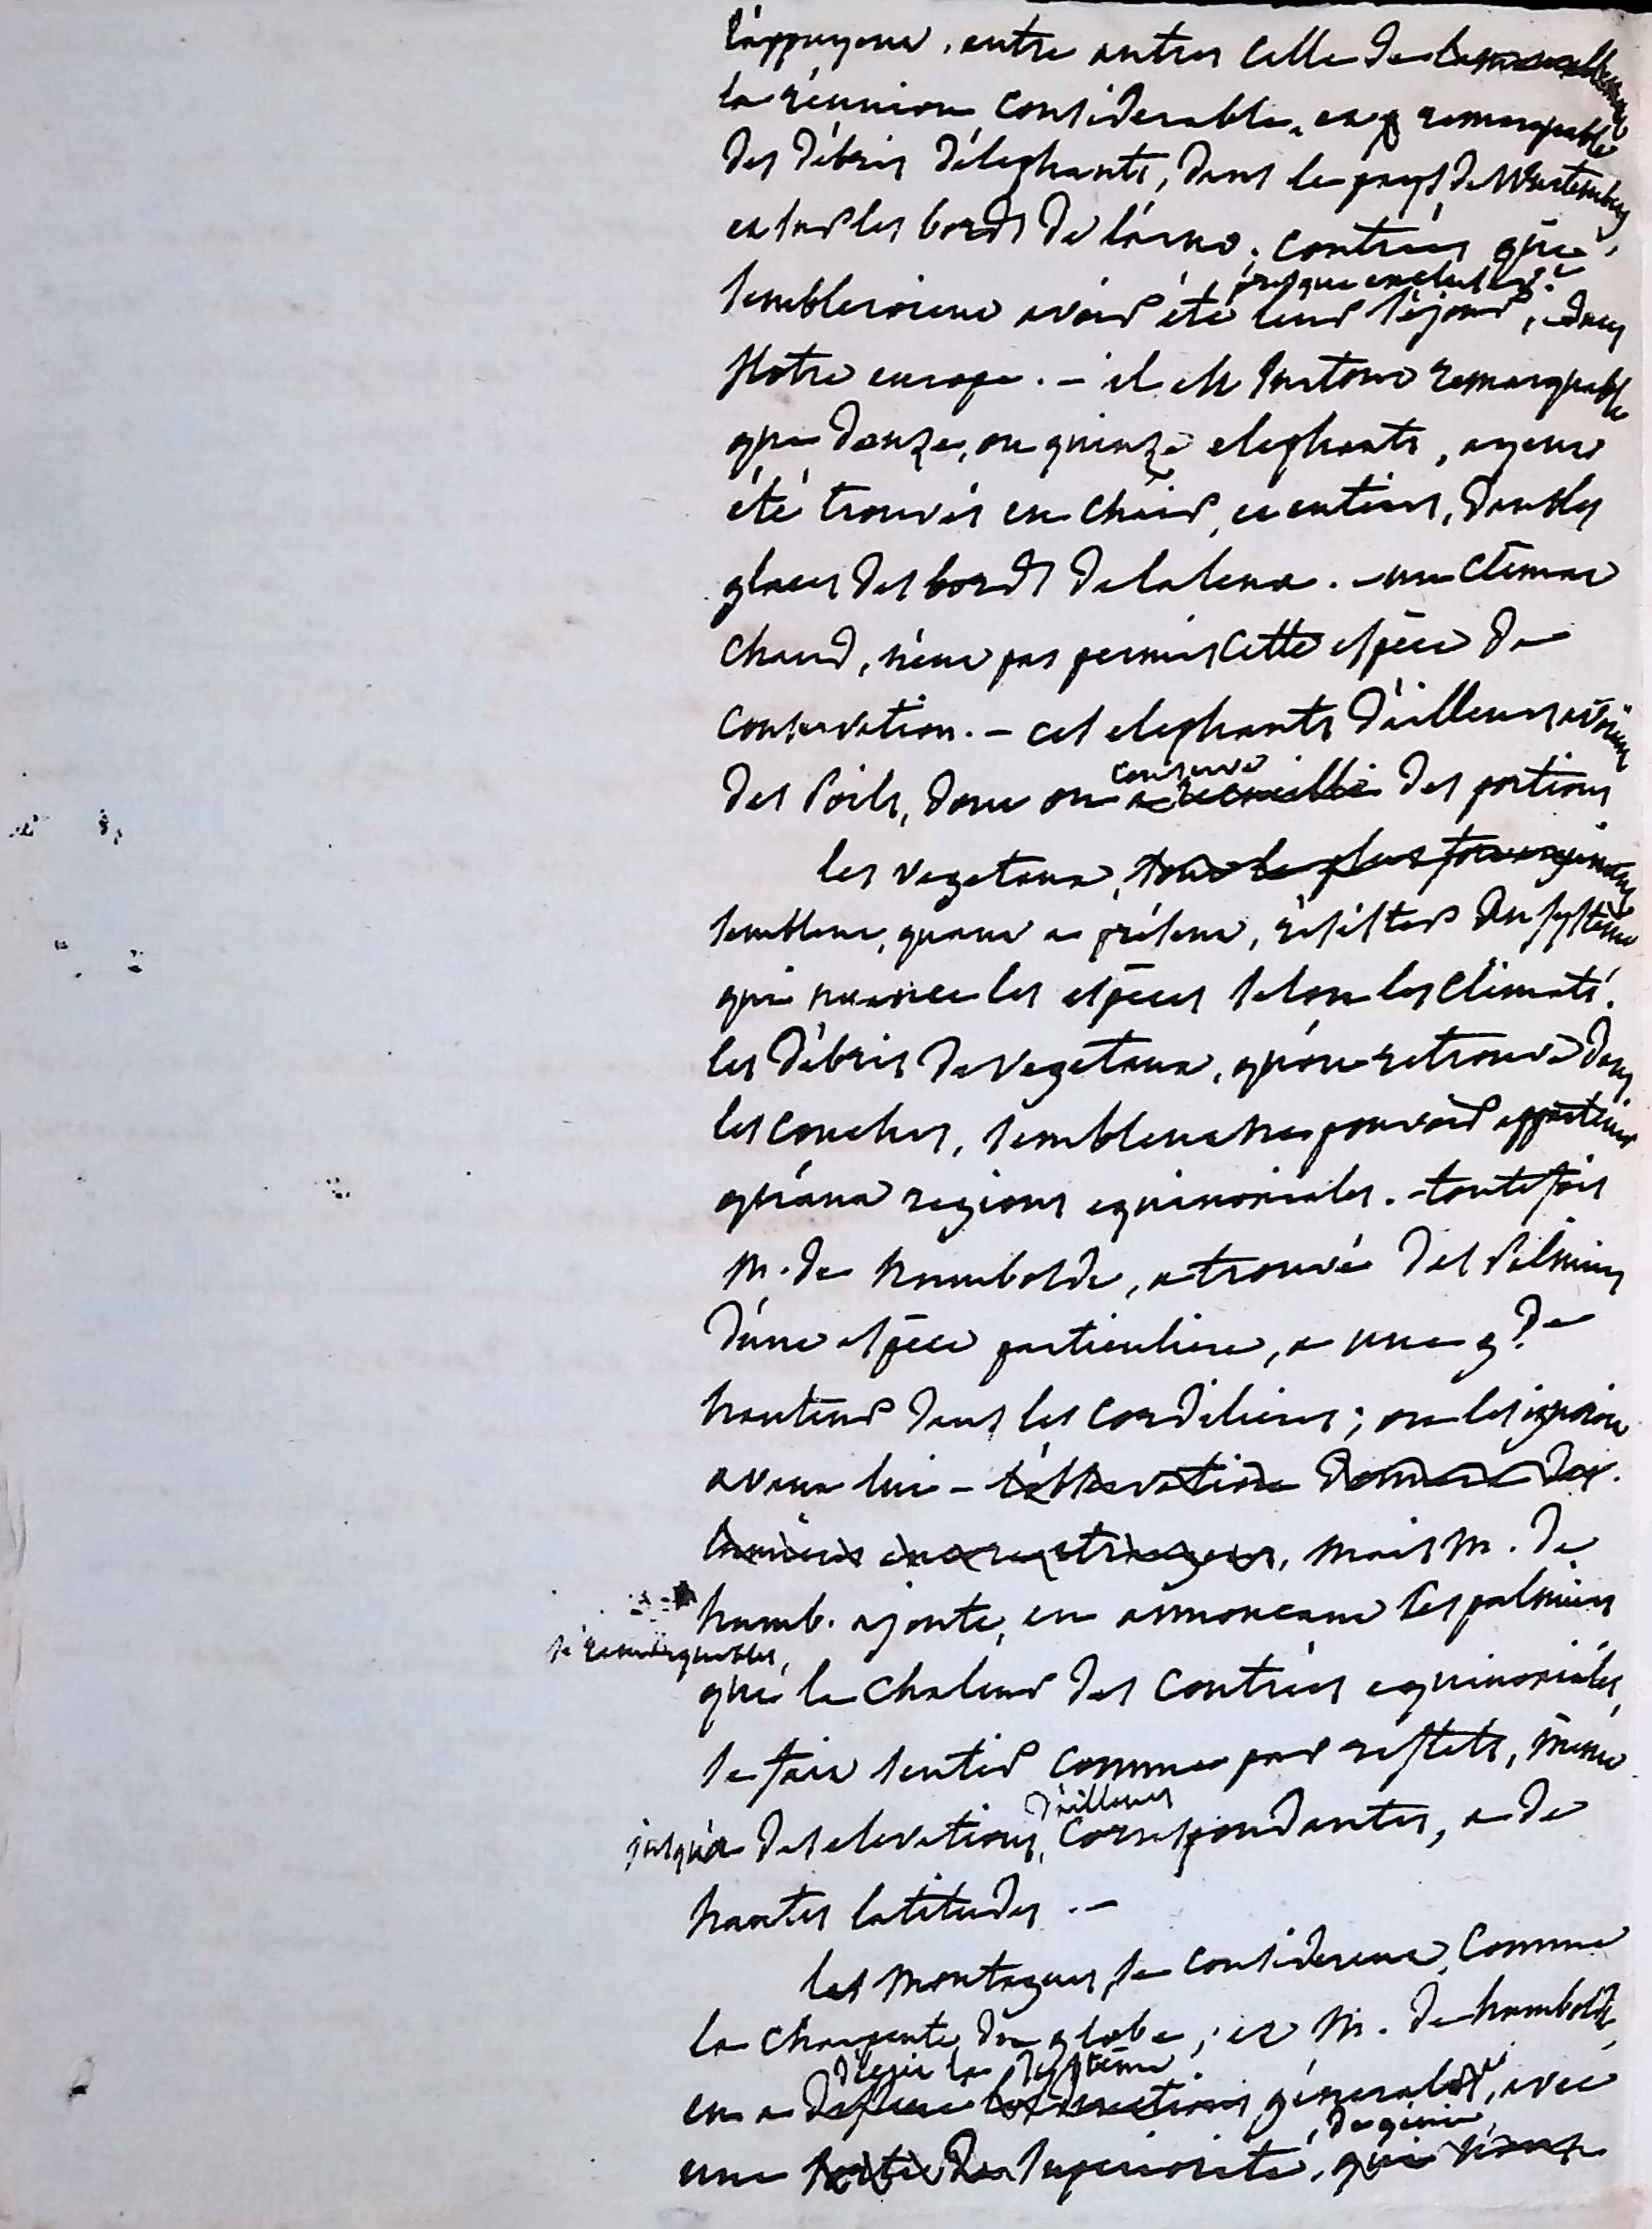 l'appuyent, entre autres celle de
la réunion considerable, et remarquable
des débris d'elephants, dans le pays de Wurtemberg
et sur les bords de l'arno; contrées que
presque exclusive
sembleroient avoir été leur séjour, dans
Notre europe. - il est surtout remarquable
que douze, ou quinze elephants, ayent
été trouvés en chair, et entiers, dans les
glaces des bords de la lena. - un climat
chaud, n'eut pas permis cette espèce de
conservation. - ces elephants d'ailleurs avoient
conservé
des Poils, dont on a recueilli des portions
les vegetaux,
semblent, quant a présent, résister au système
qui nuance les espèces selon les climats.
les débris de vegetaux, qu'on retrouve dans
les couches, semblent ne pouvoir appartenir
qu'aux regions equinoxiales. - toutefois
M. de humboldt, a trouvé des Palmiers
d'une espèce particuliere, a une g.de
hauteur dans les cordilieres; on les ignoroit
avant lui - l'observation
mais M. de
humb. ajoute, en annoncant ces palmiers
si remarquables,
que la chaleur des contrées equinoxiales,
se fait sentir comme par reflets, même
d'ailleurs
jusqu'a des elevations, correspondantes, a de
hautes latitudes. -
les Montagnes, se considerent, comme
la charpente du globe; et M. de humboldt,
le système
en a les directions générales, avec
, de génie,
une sorte de superiorité, qui